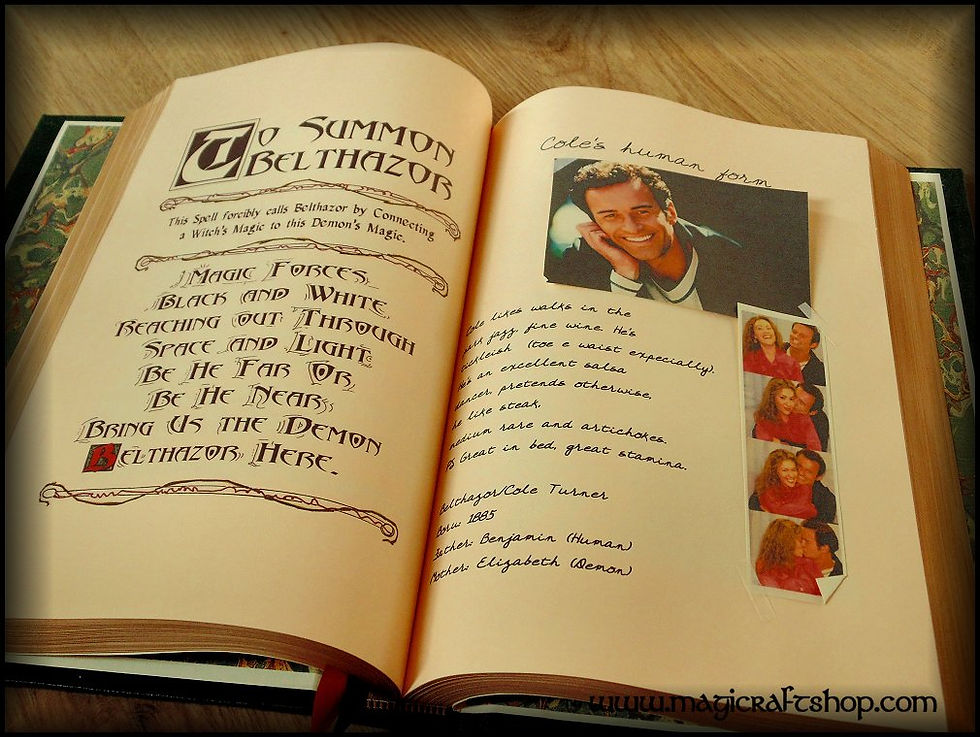 To Summon
Belthazor
This Spell forcibly calls Belthazor by Connecting
a Witch's Magic to this Demon's Magic.
Magic Forces,
Black and White,
Reaching out Through
Space and Light,
Be He Far Or,
Be He Near,
Bring Us the Demon
Belthazor Here.
Cole's human form
Cole likes walks in the
park jazz fine wine He's
(toe e waist expecially).
He's an excellent salsa
dancer, pretends otherwise,
he like steak,
medium rare and artichokes.
PS Great in bed, great stamina.
Belthazor/Cole Turner
Born: 1885
Father: Benjamin (Human)
Mother: Elizabeth (Demon)
www.magicraftshop.com